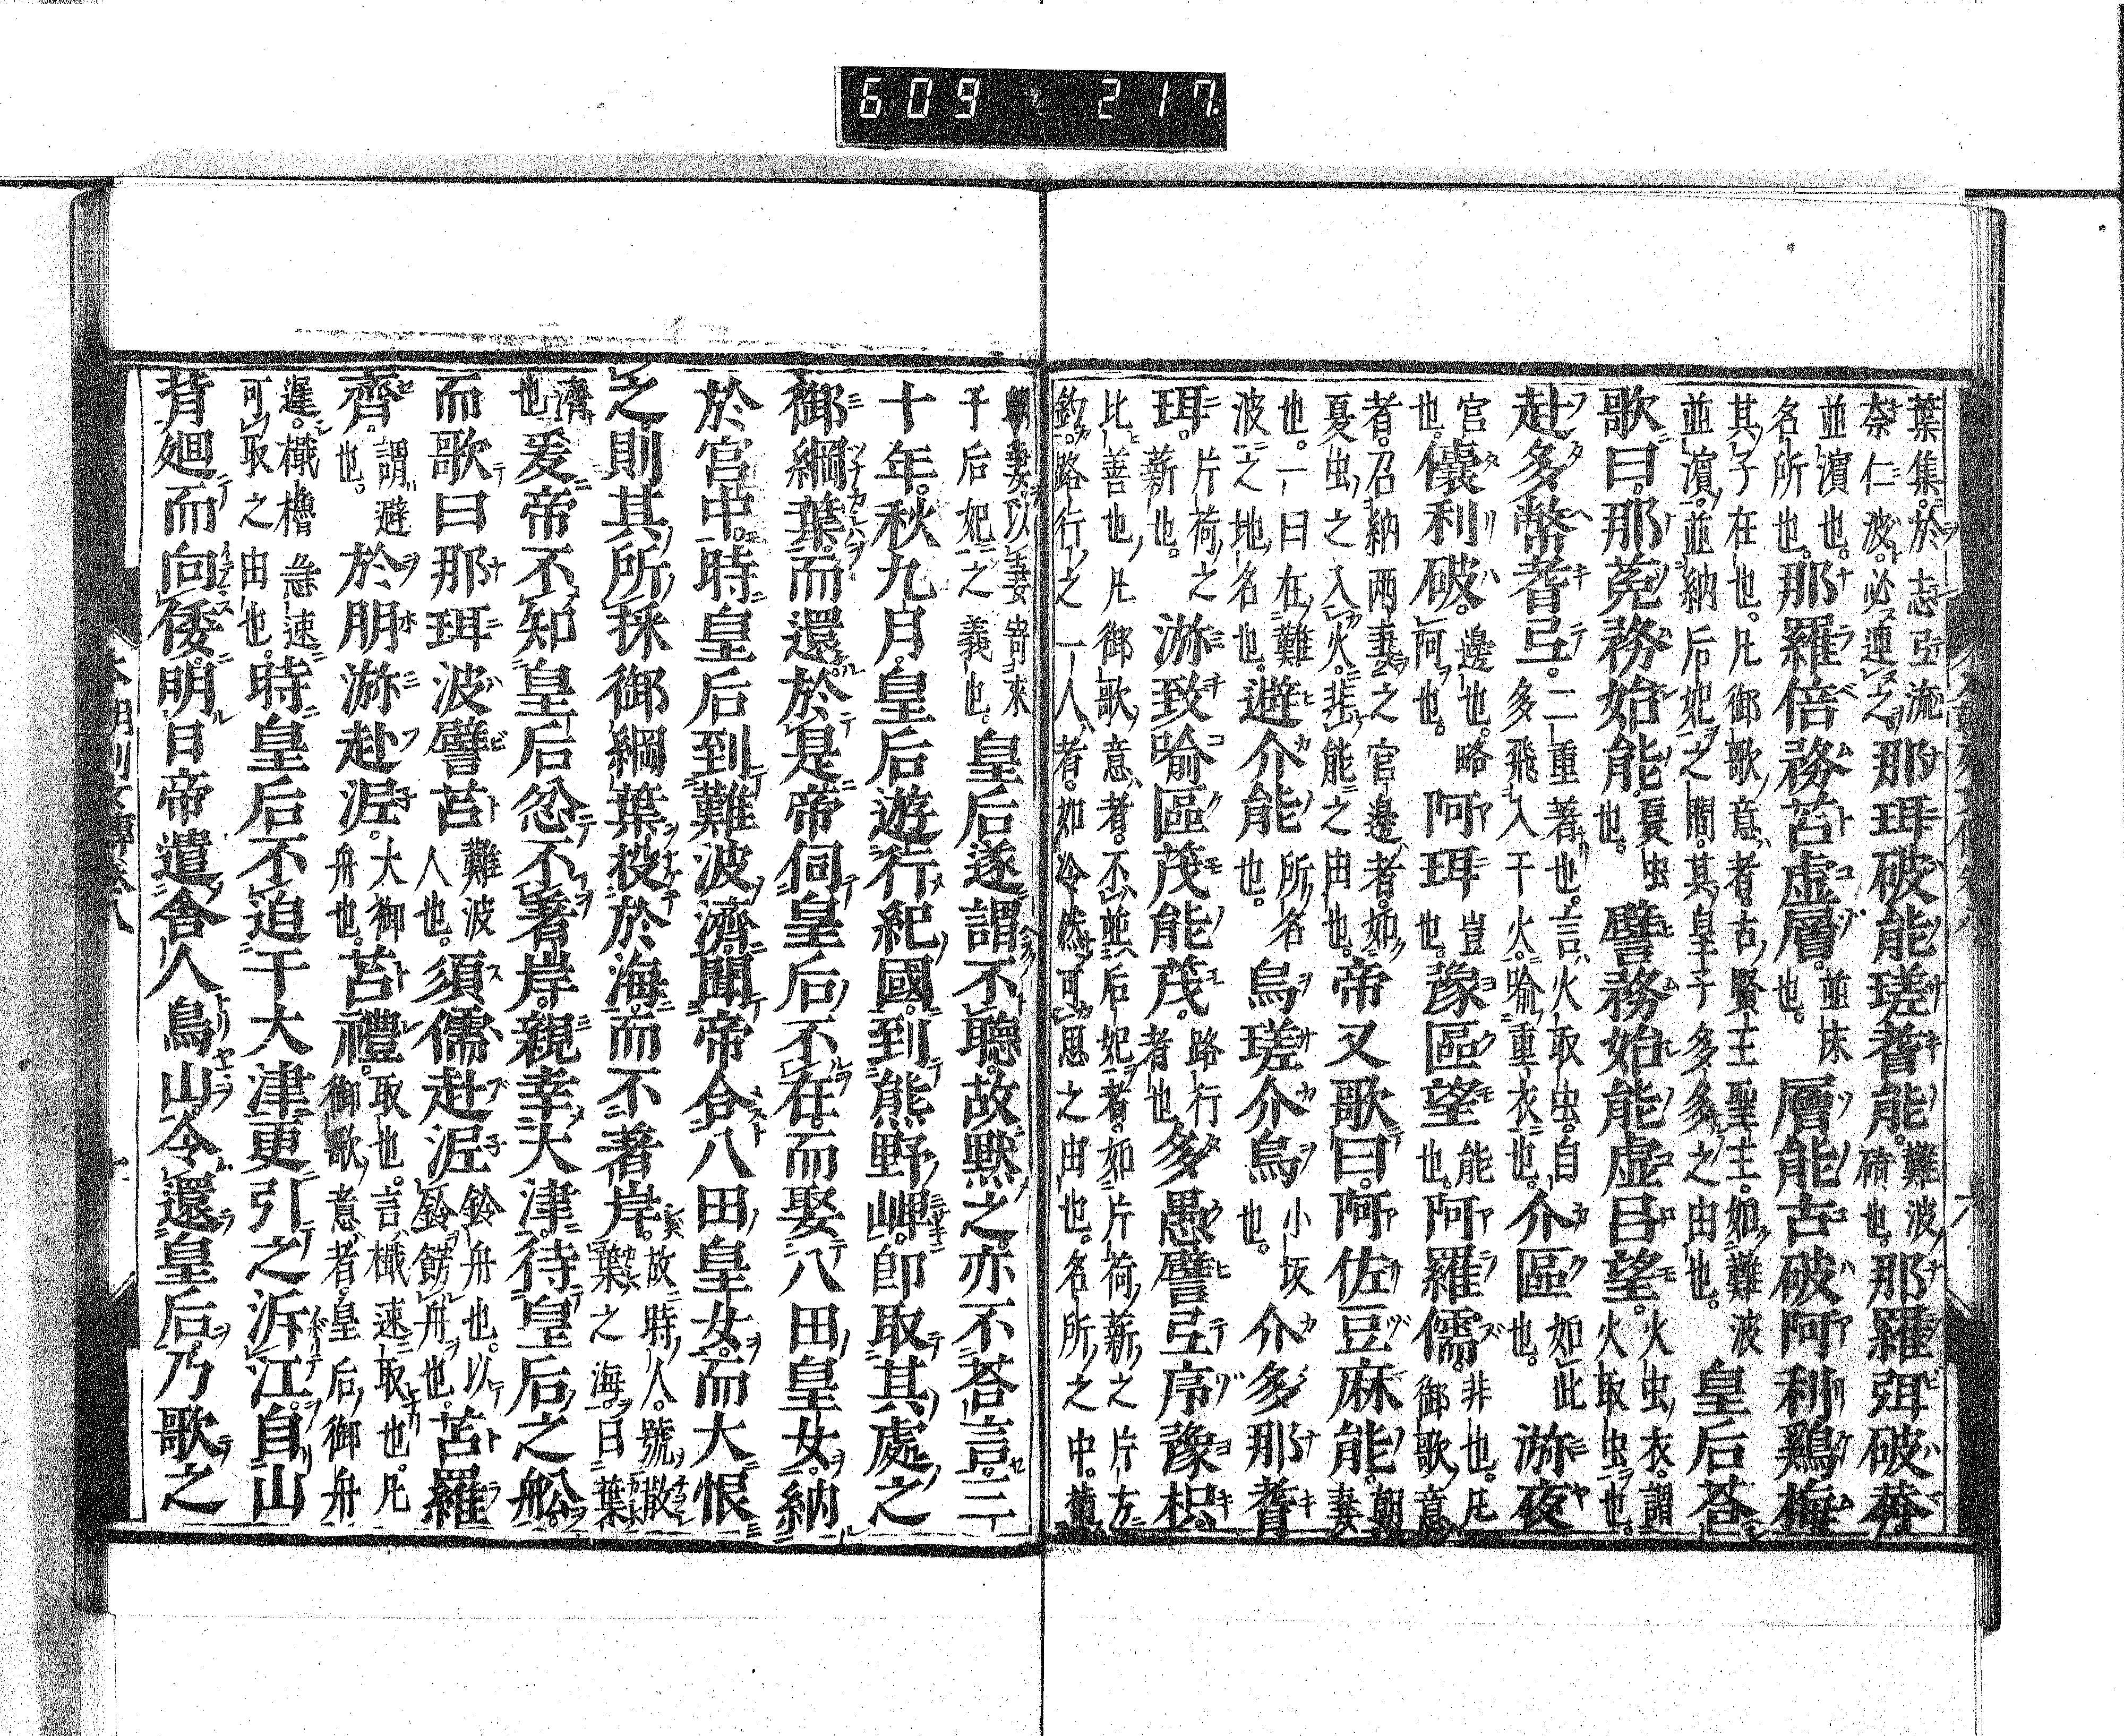 609 217
葉集於志弖流
奈仁波必連之那珥破能瑳耆能難波
碕也那羅弭破莽
並濱也
名所也那羅倍務苫虚層並牀
也層能古破阿利鷄梅
其子在也凡御歌意者古賢主聖主如難波
並濱並納后妃之間其皇子多多之由也皇后荅
歌曰那莵務始能夏虫
也譬務始能虚呂望火虫衣謂
火取虫也
赴多幣耆弖二重著也言火取虫自
多飛入于火喩重衣也介區如此
也瀰夜
官
也儴利破邊也略
阿也阿珥豈
也豫區望能
也阿羅儒非也凡
御歌意
者召納兩妻之官邊者如
夏虫之入火悲能之由也帝又歌曰阿佐豆麻能朝
妻
也一曰在難所名
波之地名也避介能
也烏瑳介烏小坂
也介多那耆
片荷之
珥薪也瀰致喩區茂能茂路行
者也多愚譬弖序豫枳
比善也凡御歌意者不並后妃者如片荷薪之片左
釣路行之一人者如冷然可思之由也名所之中
朝妻以妻妾寄來
于后妃之義也皇后遂謂不聽故默之亦不荅言三
十年秋九月皇后遊行紀國到熊野岬即取其處之
御綱葉而還於是帝伺皇后不在而娶八田皇女納
於宮中時皇后到難波濟聞帝合八田皇女而大恨
之則其所採御綱葉投於海而不著岸故時人號散
葉之海曰葉
濟
也爰帝不知皇后忿不著岸親幸大津待皇后之舩
而歌曰那珥波譬苫難波
人也須儒赴泥鈴舟也以
鈴餝舟也苫羅
齊謂避
也於朋瀰赴泥大御
舟也苫禮取也言檝速取也凡
御歌意者皇后御舟
遲檝櫓急速
可取之由也時皇后不迫于大津更引之泝江自山
背廻而向倭明日帝遣舍人鳥山令還皇后乃歌之